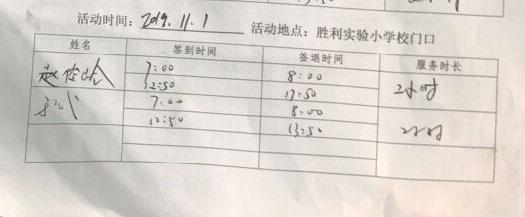 活动时间：2019.11.1 活动地点：胜利实验小学校门口
姓名 签到时间 签退时间 服务时长
7:00 8:00 2小时
12:50 13:50
7:00 8:00 2小时
12:50 13:50